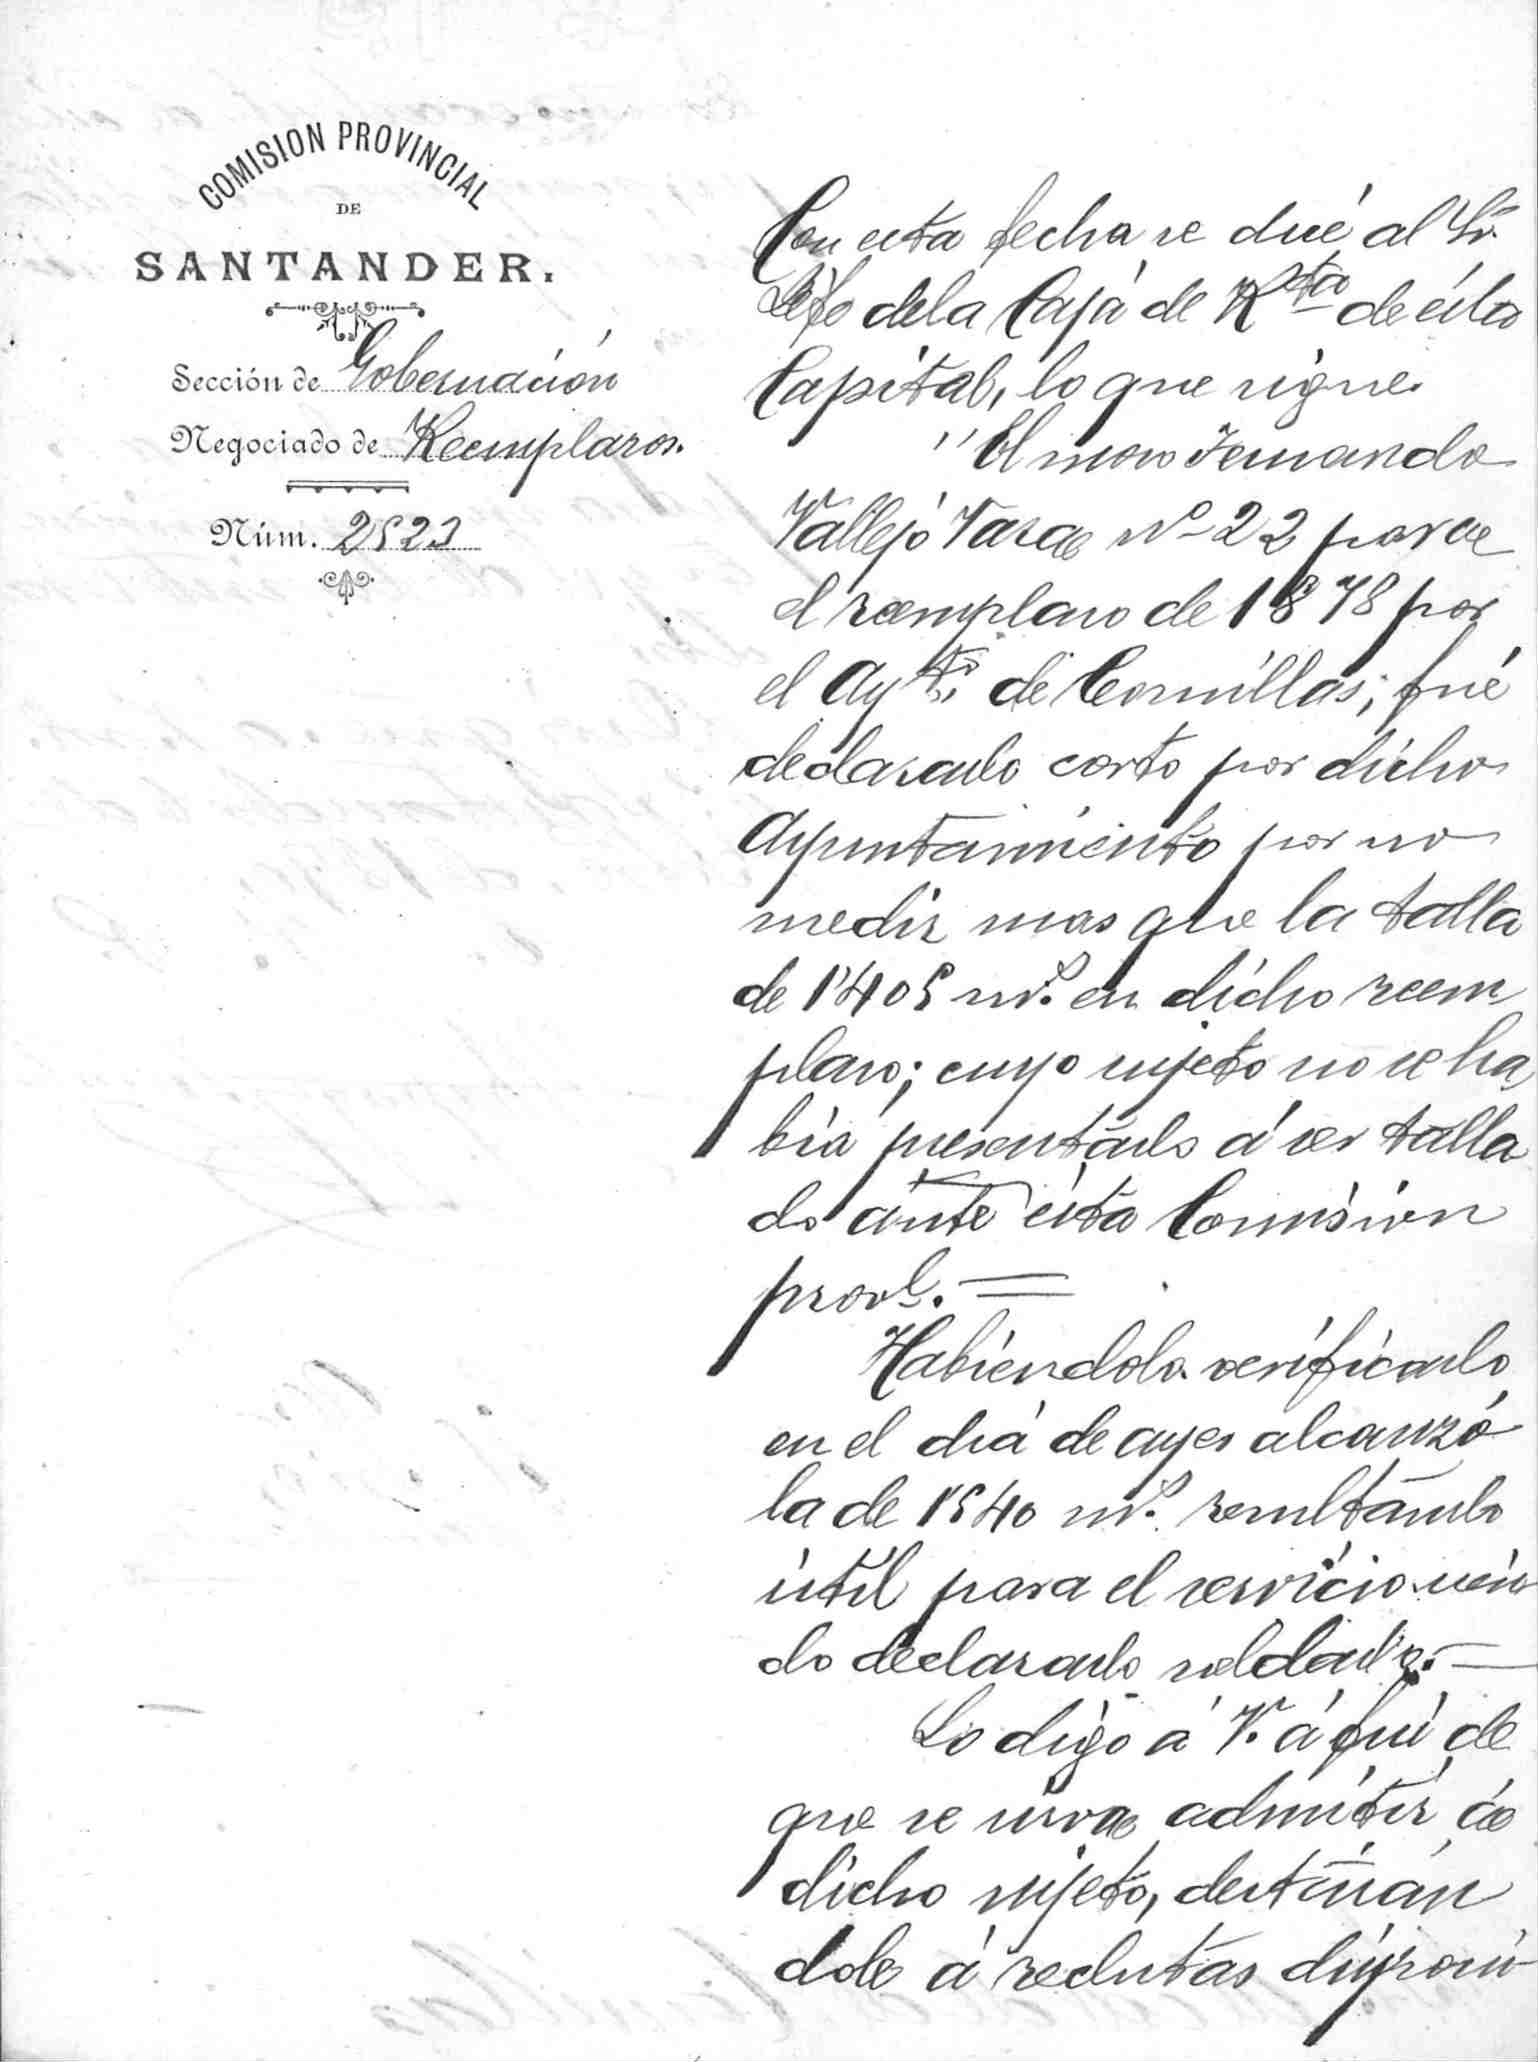 COMISION PROVINCIAL
DE
SANTANDER.
Sección de Gobernación
Negociado de Reemplazos.
Núm. 2523
Con esta fecha se dice al Sr.
Jefe de la Caja de Rta de ésta
Capital, lo que sigue.
"El mozo Fernando
Vallejo Varae nº 22 para
el reemplazo de 1878 por
el Ayto. de Comillas, fué
declarado corto por dicho
Ayuntamiento por no
medir mas que la talla
de 1'405 m. en dicho reem
plazo; cuyo sujeto no se ha
bia presentado á ser talla
do ante ésta Comision
provl. =
Habiendolo verificado
en el dia de ayer alcanzó
la de 1'540 m. resultando
útil para el servicio sien
do declarado soldado. —
Lo digo á V. á fin de
que se sirva admitir á
dicho sujeto, destinán
dole á reclutas disponi